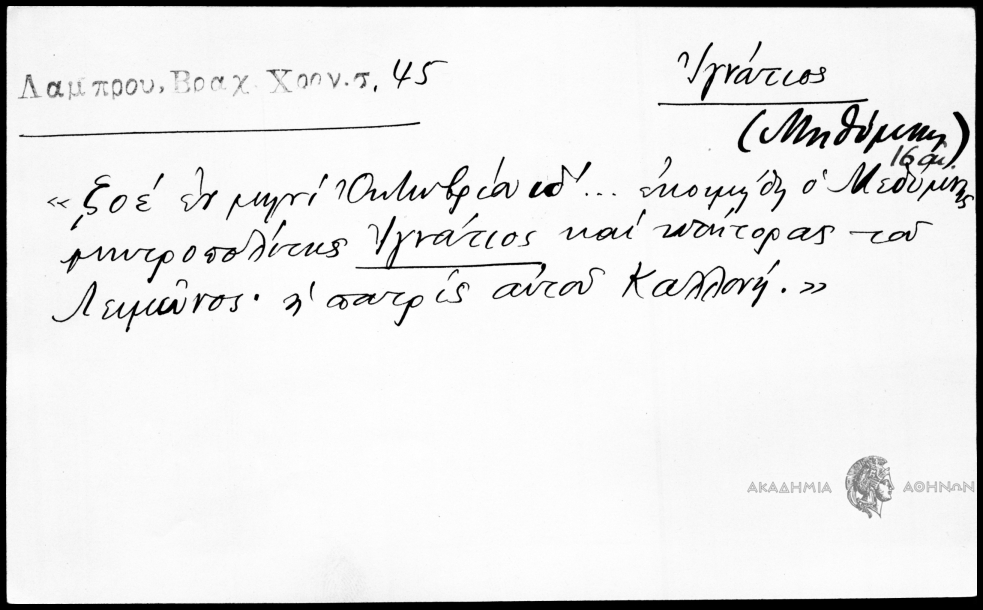 Λαμπρου, Βραχ. Χρον. σ. 45
Ἰγνάτιος
(Μηθύμνης)
16 αἰ.
«ζοέ ἐν μηνί Ὀκτωβρίῳ ιδ'... ἐκοιμήθη ὁ Μεθύμνης
μητροπολίτης Ἰγνάτιος καί κτήτορας τοῦ
Λειμῶνος. ἡ πατρίς αὐτοῦ Καλλονή.»
ΑΚΑΔΗΜΙΑ ΑΘΗΝΩΝ